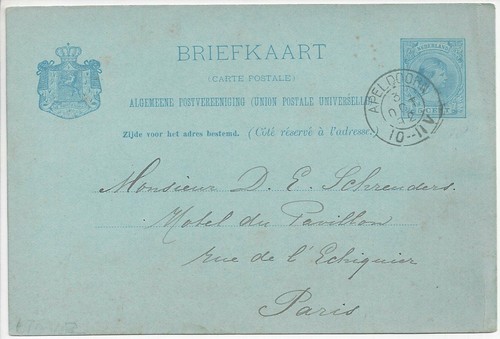 BRIEFKAART
(CARTE POSTALE)
ALGEMEENE POSTVEREENIGING (UNION POSTALE UNIVERSELLE)
Zijde voor het adres bestemd. (Côté réservé à l'adresse.)
NEDERLAND
APELDOORN
10-11V
Monsieur D. E. Schreuders.
Hotel du Pavillon
rue de l'Echiquier
Paris